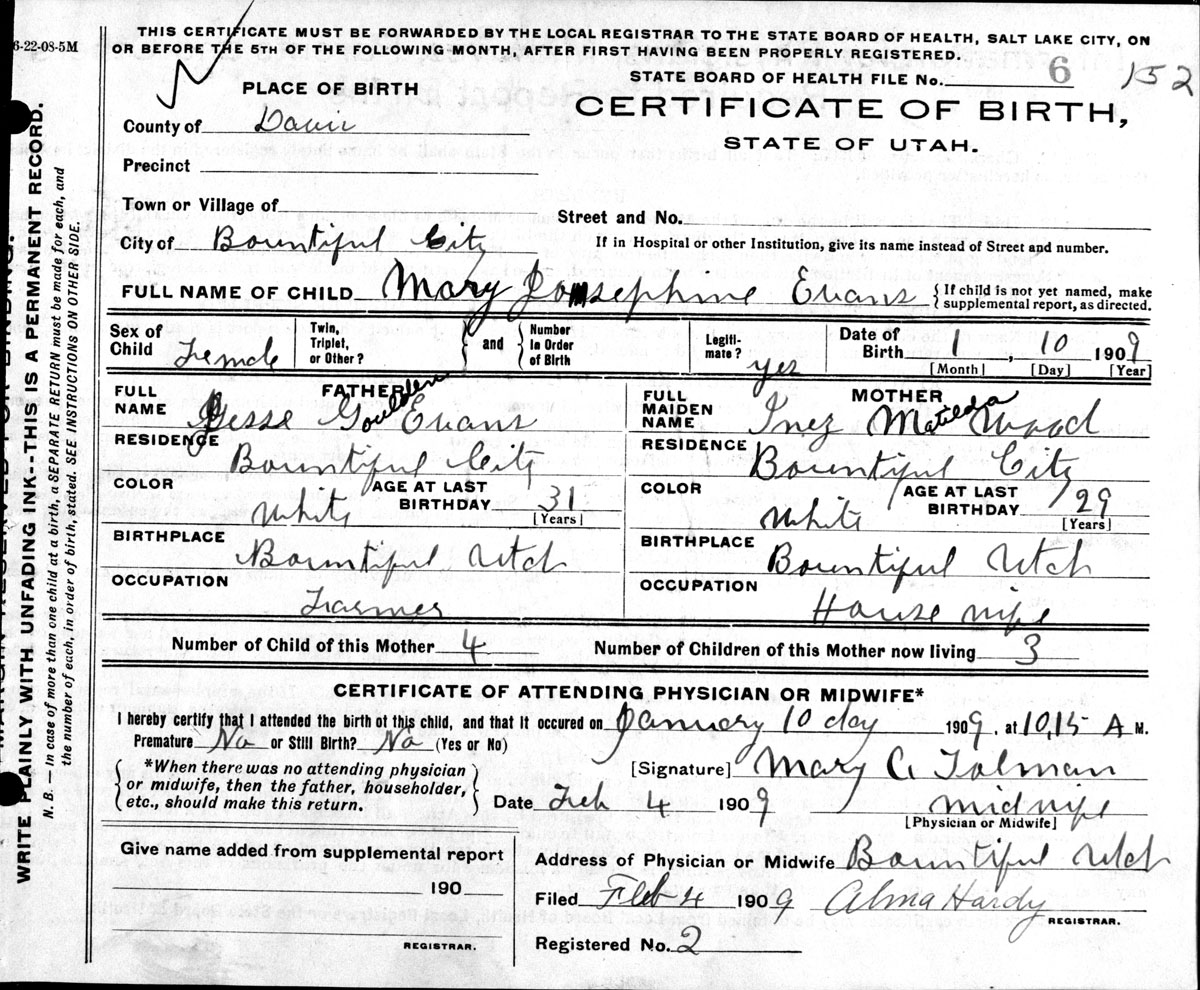 6-22-08-5M
THIS CERTIFICATE MUST BE FORWARDED BY THE LOCAL REGISTRAR TO THE STATE BOARD OF HEALTH, SALT LAKE CITY, ON
OR BEFORE THE 5TH OF THE FOLLOWING MONTH, AFTER FIRST HAVING BEEN PROPERLY REGISTERED.
STATE BOARD OF HEALTH FILE No. 6 152
PLACE OF BIRTH
CERTIFICATE OF BIRTH,
STATE OF UTAH.
County of Davis
Precinct
Town or Village of
Street and No.
City of Bountiful City
If in Hospital or other Institution, give its name instead of Street and number.
FULL NAME OF CHILD Mary Josephine Evans { If child is not yet named, make
supplemental report, as directed.
Sex of Child Female
Twin, Triplet, or Other? } and { Number In Order of Birth
Legitimate? yes
Date of Birth 1, 10 1909
[Month] [Day] [Year]
FATHER
FULL NAME Jesse Goulden Evans
RESIDENCE Bountiful City
COLOR White AGE AT LAST BIRTHDAY 31 [Years]
BIRTHPLACE Bountiful Utah
OCCUPATION Farmer
MOTHER
FULL MAIDEN NAME Inez Matilda Wood
RESIDENCE Bountiful City
COLOR White AGE AT LAST BIRTHDAY 29 [Years]
BIRTHPLACE Bountiful Utah
OCCUPATION House wife
Number of Child of this Mother 4 Number of Children of this Mother now living 3
CERTIFICATE OF ATTENDING PHYSICIAN OR MIDWIFE*
I hereby certify that I attended the birth of this child, and that it occured on January 10 day 1909, at 10,15 A M.
Premature No or Still Birth? No (Yes or No)
*When there was no attending physician
or midwife, then the father, householder,
etc., should make this return.
[Signature] Mary C Tolman
Date Feb 4 1909 Midwife
[Physician or Midwife]
Give name added from supplemental report
190
REGISTRAR.
Address of Physician or Midwife Bountiful Utah
Filed Feb 4 1909 Alma Hardy
REGISTRAR.
Registered No. 2
WRITE PLAINLY WITH UNFADING INK--THIS IS A PERMANENT RECORD.
N. B. — In case of more than one child at a birth, a SEPARATE RETURN must be made for each, and
the number of each, in order of birth, stated. SEE INSTRUCTIONS ON OTHER SIDE.